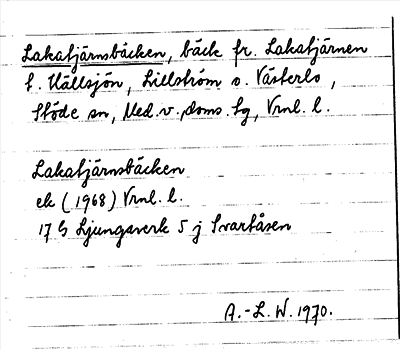 Lakatjärnsbäcken, bäck fr. Lakatjärnen
t. Källsjön, Lillström o. Västerlo,
Stöde sn, Med.v. doms. tg, Vrml. l.
Lakatjärnsbäcken
ek (1968) Vrml. l.
17 G Ljungaverk 5 j Svartåsen
A.-L. W. 1970.